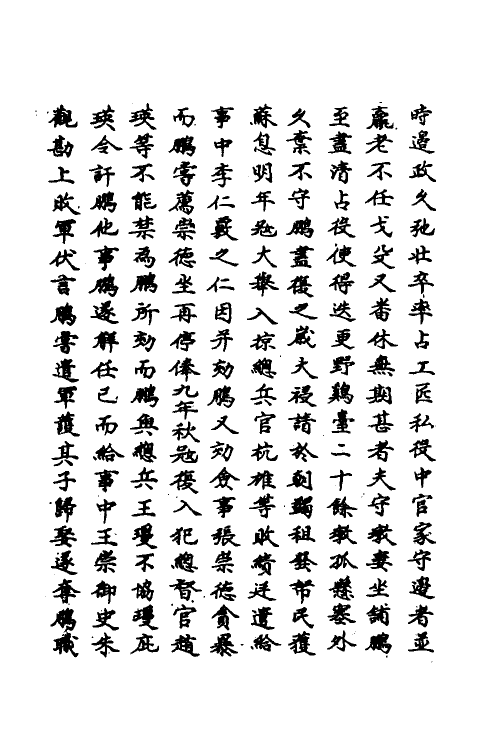 時邉政久弛壯卒率占工匠私役中官家守邉者並
羸老不任戈殳又畨休無期甚者夫守墩妻坐舖鵬
至盡清占役使得迭更野鷄臺二十餘墩孤懸塞外
久棄不守鵬盡復之歳大祲請於朝蠲租發帑民獲
蘇息明年冦大舉入掠總兵官杭雄等敗績廷遣給
事中李仁覈之仁因并劾鵬又劾僉事張崇德貪暴
而鵬嘗薦崇德坐再停俸九年秋冦復入犯總督官趙
瑛等不能禁為鵬所劾而鵬與總兵王瑾不協瑾庇
瑛令訐鵬他事鵬遂解任已而給事中王崇御史朱
觀勘上敗軍伏言鵬嘗遣軍護其子歸娶遂奪鵬職